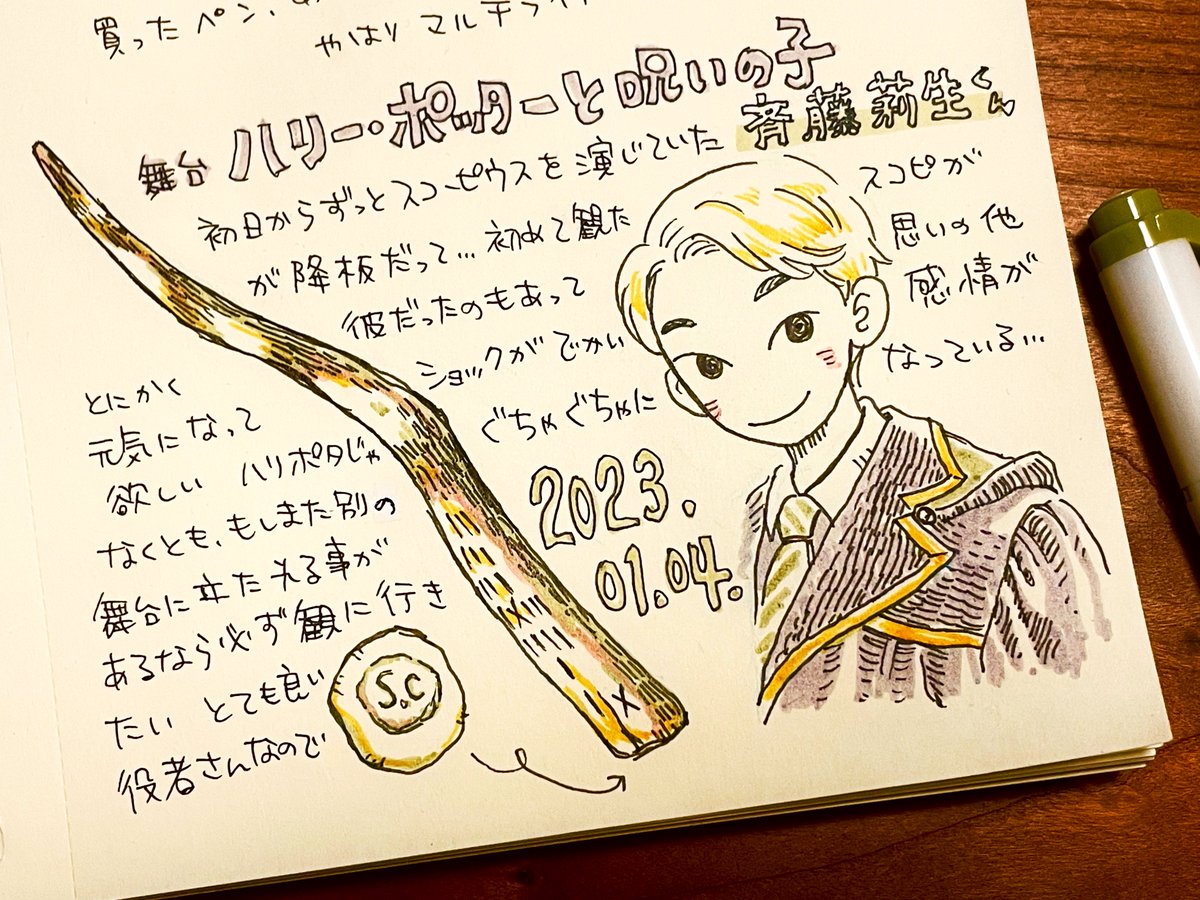 買ったペン、
やはり マルチライ
舞台 ハリー・ポッターと呪いの子
初日からずっとスコーピウスを演じていた 斉藤莉生くん
が降板だって…初めて観た
彼だったのもあって
ショックがでかい
スコピが
思いの他
感情が
ぐちゃぐちゃに
なっている…
とにかく
元気になって
欲しい ハリポタじゃ
なくとも、もしまた別の
舞台に立たれる事が
あるなら必ず観に行き
たい とても良い
役者さんなので
2023.
01.04.
S.C